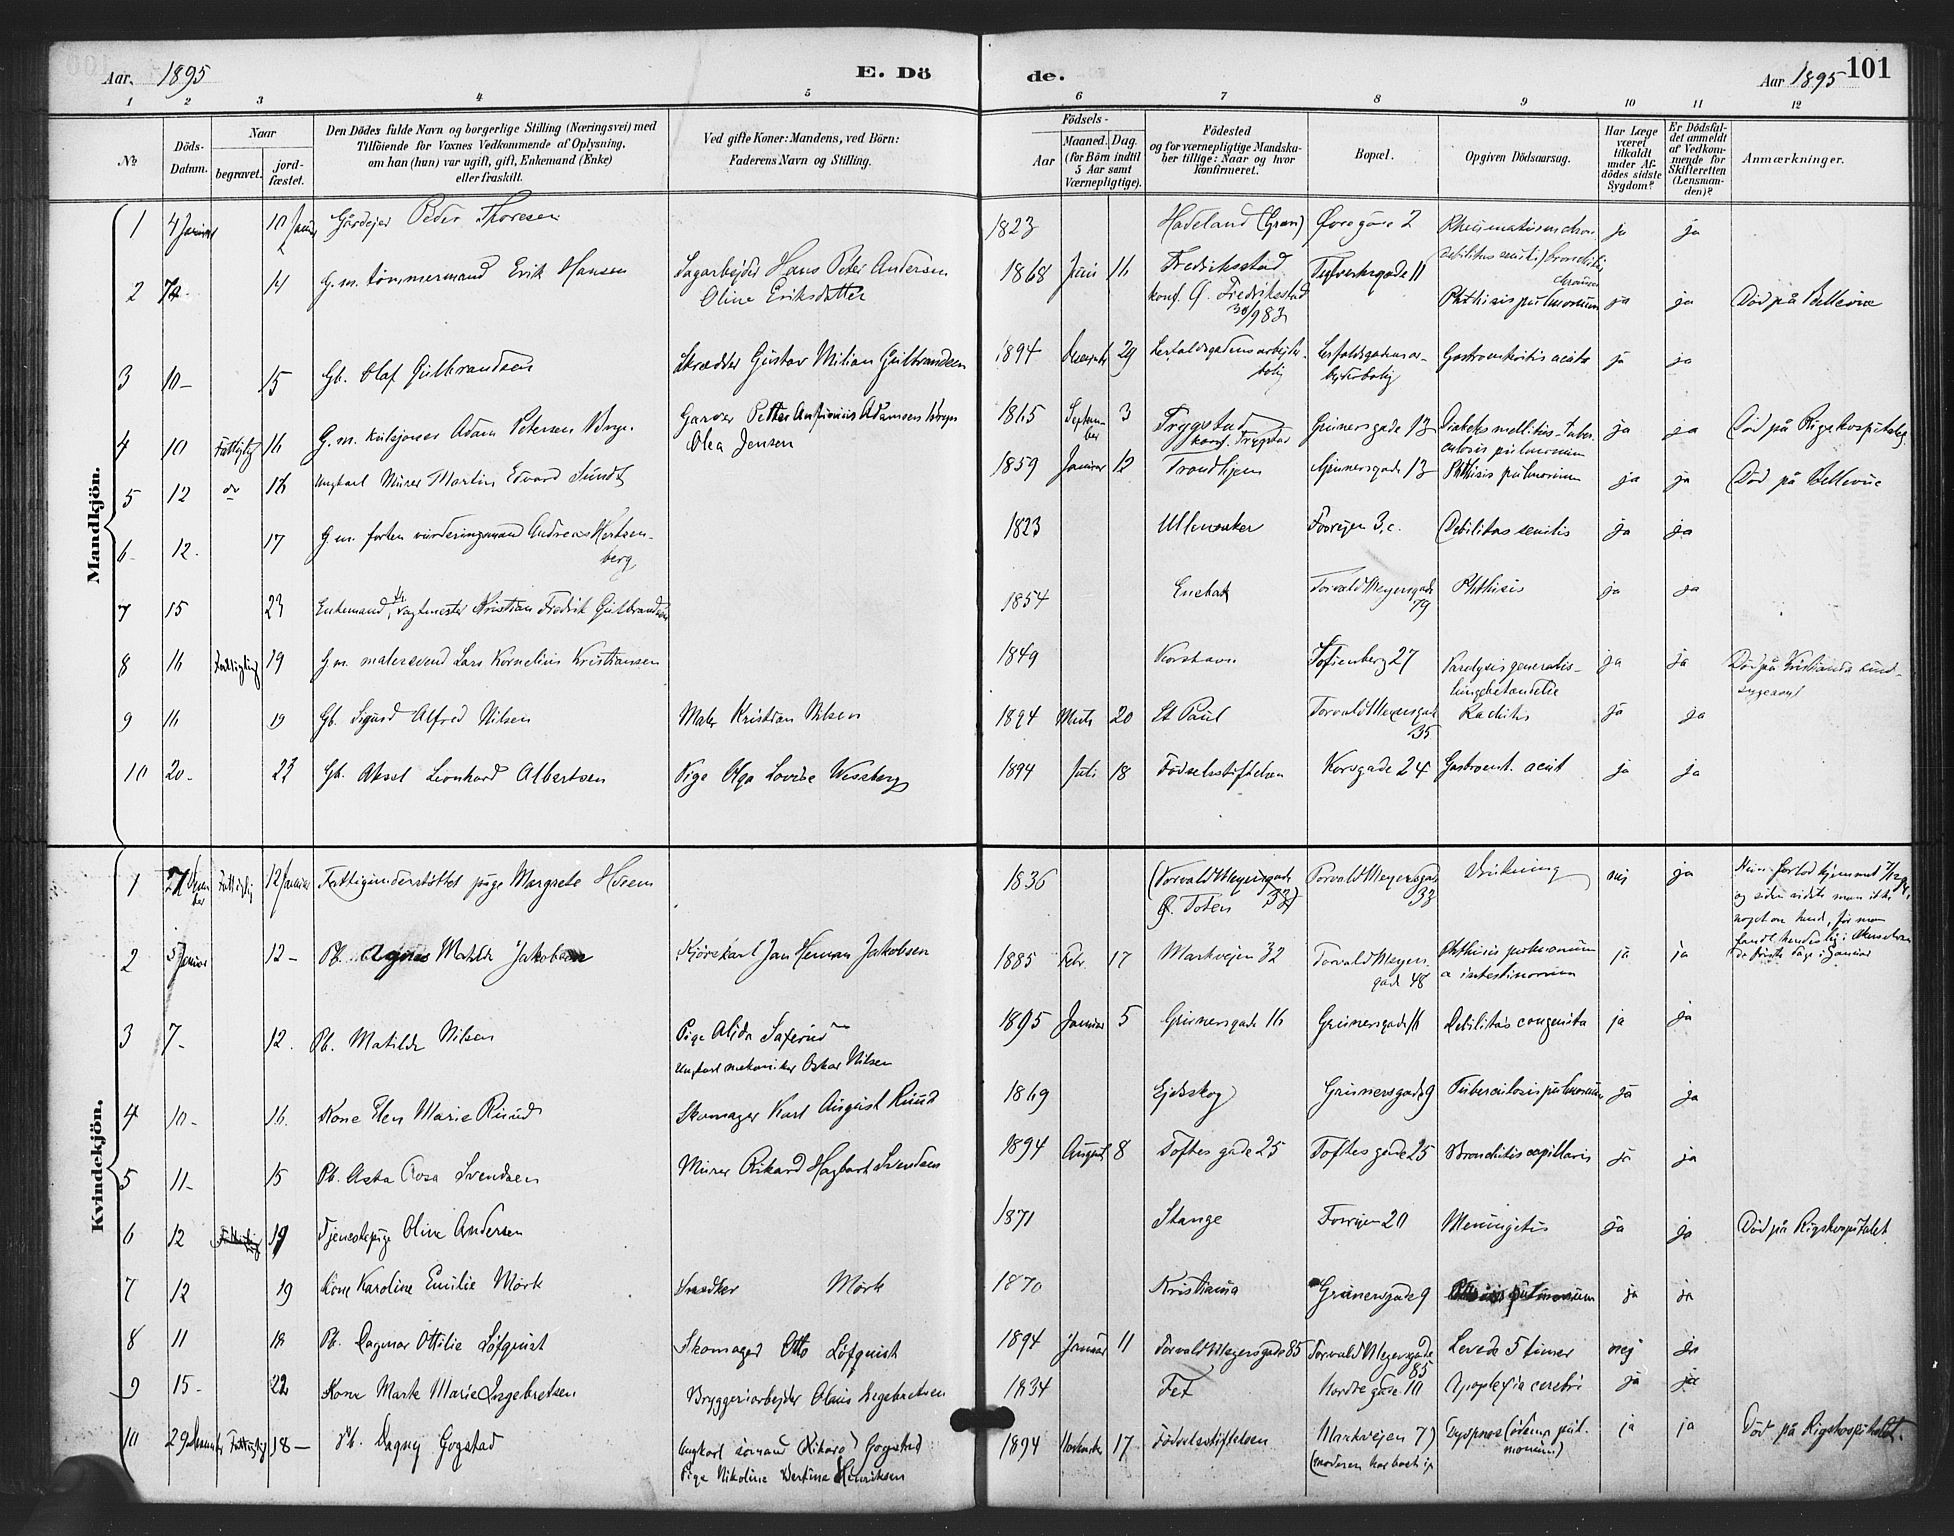 Aar. 1895
E. Dö
de.
Aar 1895
101
1 2 3 4 5 6 7 8 9 10 11 12
№
Döds-
Datum.
Naar
begravet.
jord-
fæstet.
Den Dödes fulde Navn og borgerlige Stilling (Næringsvei) med
Tilföiende for Voxnes Vedkommende af Oplysning,
om han (hun) var ugift, gift, Enkemand (Enke)
eller fraskilt.
Ved gifte Koner: Mandens, ved Börn:
Faderens Navn og Stilling.
Födsels-
Aar
Maaned. Dag.
(for Börn indtil
5 Aar samt
Værnepligtige).
Födested
og for værnepligtige Mandska-
ber tillige: Naar og hvor
konfirmeret.
Bopæl.
Opgiven Dödsaarsag.
Har Læge
været
tilkaldt
under Af-
dödes sidste
Sygdom?
Er Dödsfal-
det anmeldt
af Vedkom-
mende for
Skifteretten
(Lensman-
den)?
Anmærkninger.
Mandkjön.
1 4 Januar 10 Januar Gårdejer Peder Thoresen 1823 Hadeland (Gran) Øvregade 2 Rheumatismus chron. ja ja
debilitas senilis, bronchitis
2 14 G. m. tømmermand Erik Hansen Sagarbejder Hans Peter Andersen 1868 Juni 16 Fredriksstad 11
Oline Eriksdatter konf. Ø. Fredriksstad Phthisis pulmonum ja ja Død på Bellevue
3 10 – 15 Gb. Olaf Gulbrandsen Skrædder Gustav Milian Gulbrandsen 1894 December 29 Gastroenteritis acuta ja ja
4 10 Fattigl. 16 G. m. Adam Petersen Garver Petter Adamsen 1865 September 3 Trygstad Grünersgade 13 Diabetes mellitus – Tuber-
Olea Jensen konf. Trygstad culosis pulmonum ja ja Død på Rigshospitalet
5 12 do 18 Ungkarl Murer Martin Edvard Sundt 1859 Januar 12 Trondhjem Grünersgade 13 Phthisis pulmonum ja ja Død på Bellevue
6 12. 17 G. m. forhen vurderingsmand Andreas Hertzen-
berg 1823 Ullensaker Fossvejen 3, c. Debilitas senilis ja ja
7 15 23 Enkemand, vagtmester Kristian Fredrik Gulbrandsen 1854 Enebak Torvald Meyersgade
79 Phthisis ja ja
8 16 Fattiglig 19 G. m. malersvend Lars Kornelius Kristiansen 1849 Korshavn Sofienberg 27 Paralysis generalis – ja ja Død på Kristiania sind-
sygeasyl
9 16 19 Gb. Sigurd Alfred Nilsen Maler Kristian Nilsen 1894 Marts 20 St Paul Torvald Meyersgade
35 Rachitis ja ja
10 20 – 23 Gb. Aksel Leonhard Albertsen Pige Olga Lovise Wessberg 1894 Juli 18 Fødselsstiftelsen Korsgade 24 Gastroent. acut ja ja
Kvindekjön.
1 Fattiglig 12 Januar Fattigunderstøttet pige Margrete 1836 (Torvald Meyersgade
33) Ø. Toten Torvald Meyersgade
33 Drukning nej ja Hun forlod hjemmet 7/12 94,
og siden vidste man ikke
noget om hende, før man
fandt hendes lig i Akerselven
de første dage i Januar
2 5 Januar 12 – Pb. Agnes Matilde Jakobsen Kjørekarl Jan Herman Jakobsen 1885 Febr. 17 Markvejen 32 Torvald Meyers
gade 48 Phthisis pulmonum
a intestinorum ja ja
3 7 – 12. Pb. Matilde Nilsen Pige Alida 1895 Januar 5 Grünersgade 16 Grünersgade 16 Debilitas congenita ja ja
Ungkarl mekaniker Oskar Nilsen
4 10 – 16. Kone Elen Marie Ruud Skomager Karl August Ruud 1869 Ejdskog Grünersgade 9 Tuberculosis pulmonum ja ja
5 11 – 15 Pb. Asta Rosa Svendsen Murer Rikard Hagbart Svendsen 1894 August 8 Toftes gade 25 Toftes gade 25 Bronchitis capillaris ja ja
6 12 Fattiglig 19 Tjenestepige Oline Andersen 1871 Stange Fossvejen 20 Meningitis ja ja Død på Rigshospitalet
7 12 19 Kone Karoline Emilie Mørk Snedker Mørk 1870 Kristiania Grünersgade 9 Phthisis pulmonum ja ja
8 11 18 Pb. Dagmar Ottilie Løfquist Skomager Otto Løfquist 1894 Januar 11 Torvald Meyersgade 85 Torvald Meyersgade
85 Levede 5 timer nej ja
9 15 – 22 Kone Marte Marie Ingebretsen Bryggeriarbejder Olaus Ingebretsen 1834 Fet Nordre gade 10 Apoplexia cerebri ja ja
10 29 December Fattiglig 18 – Pb. Dagny Gogstad Ungkarl sømand Rikard Gogstad 1894 November 17 Fødselsstiftelsen Markvejen 7) Dyspnoe (ødema pul-
monum) ja ja Død på Rigshospitalet.
Pige Nikoline Bertine Henriksen (moderen har boet i)